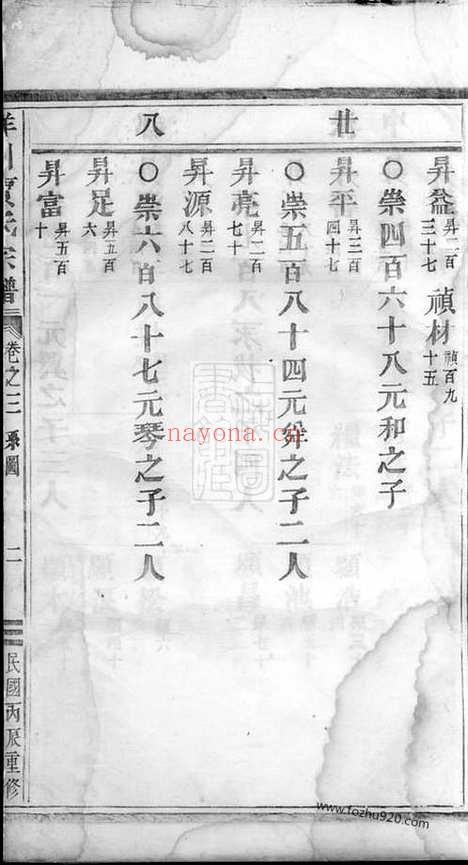 廿
八
昇益 昇二百三十七 禎材 禎百九十五
○崇四百六十八元和之子
昇平 昇三百四十七
○崇五百八十四元舜之子二人
昇亮 昇二百七十
昇源 昇二百八十七
○崇六百八十七元琴之子二人
昇足 昇五百六
昇富 昇五百十
氏宗譜
卷之三 系圖
二
民國丙辰重修
nayona.cn
www.fozhu920.com